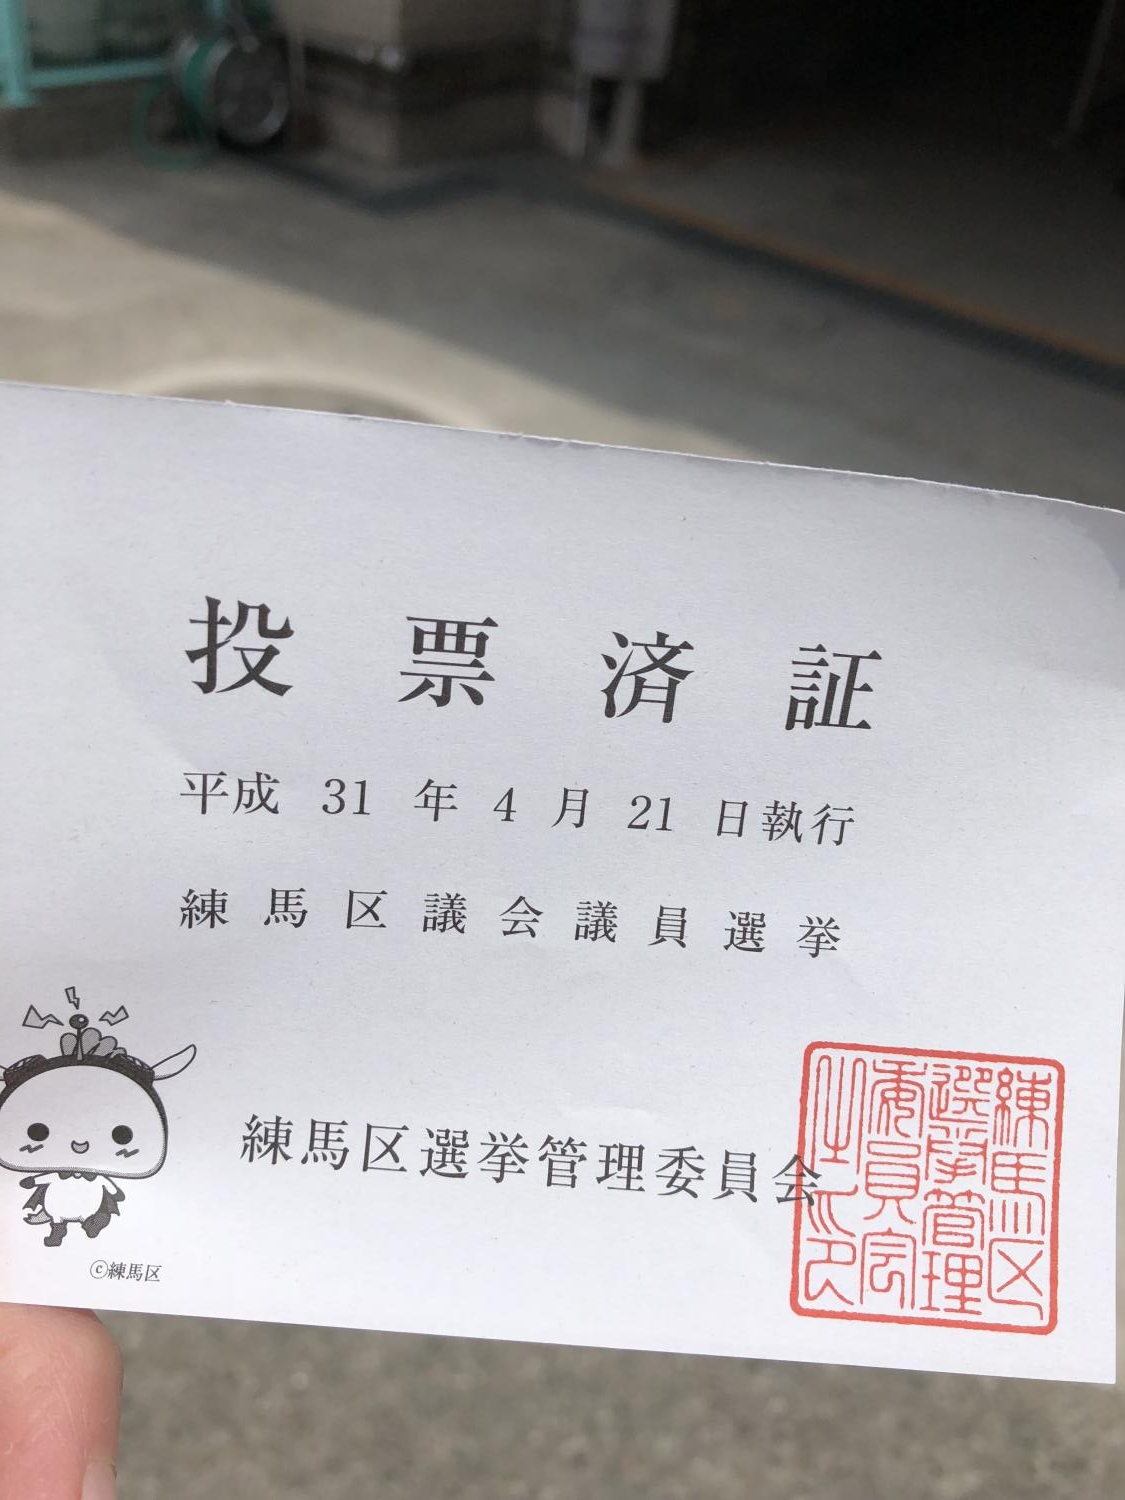 投票済証
平成31年4月21日執行
練馬区議会議員選挙
練馬区選挙管理委員会
©練馬区
練馬区
選挙管理
委員会
之印